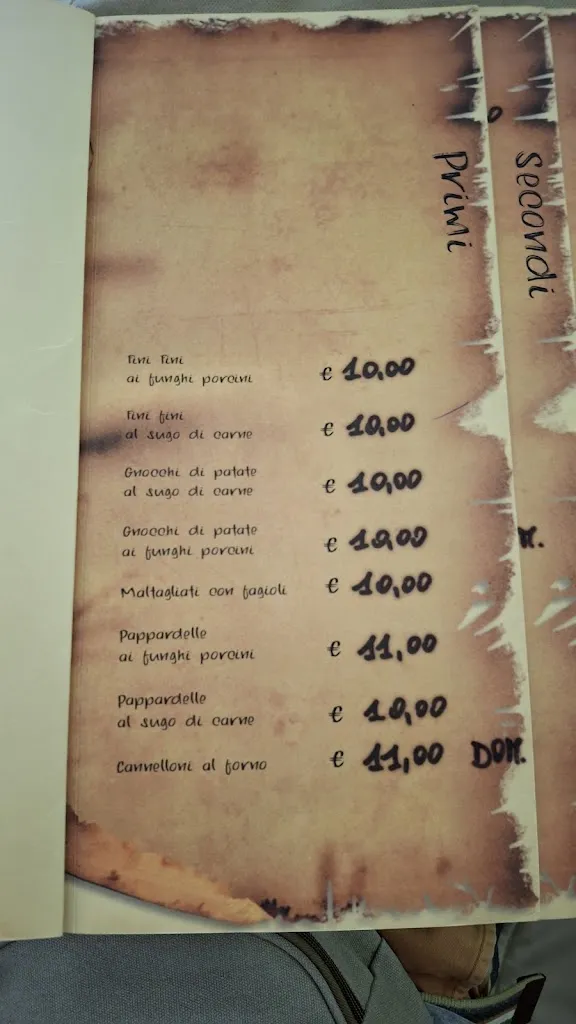 Primi
Secondi
Fini Fini
ai funghi porcini € 10,00
Fini fini
al sugo di carne € 10,00
Gnocchi di patate
al sugo di carne € 10,00
Gnocchi di patate
ai funghi porcini € 10,00
Maltagliati con fagioli € 10,00
Pappardelle
ai funghi porcini € 11,00
Pappardelle
al sugo di carne € 10,00
Cannelloni al forno € 11,00 DOM.